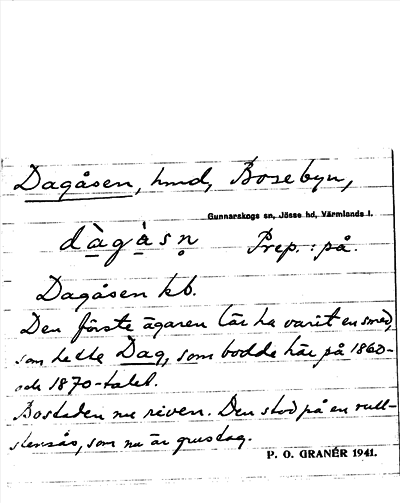 Dagåsen, hmd, Bosebyn,
Gunnarskogs sn, Jösse hd, Värmlands l.
dàgàsn̥ Prep.: på.
Dagåsen kb.
Den förste ägaren lär ha varit en smed,
som hette Dag, som bodde här på 1860-
och 1870-talet.
Bostaden nu riven. Den stod på en rull-
stensås, som nu är grustag.
P. O. GRANÉR 1941.